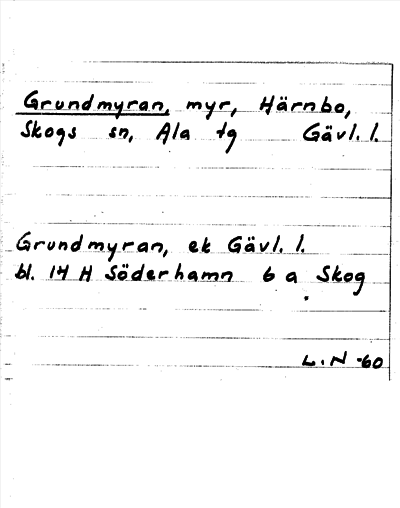 Grundmyran, myr, Härnbo,
Skogs sn, Ala tg Gävl. l.
Grundmyran, ek Gävl. l.
bl. 14 H Söderhamn 6 a Skog
L.N -60